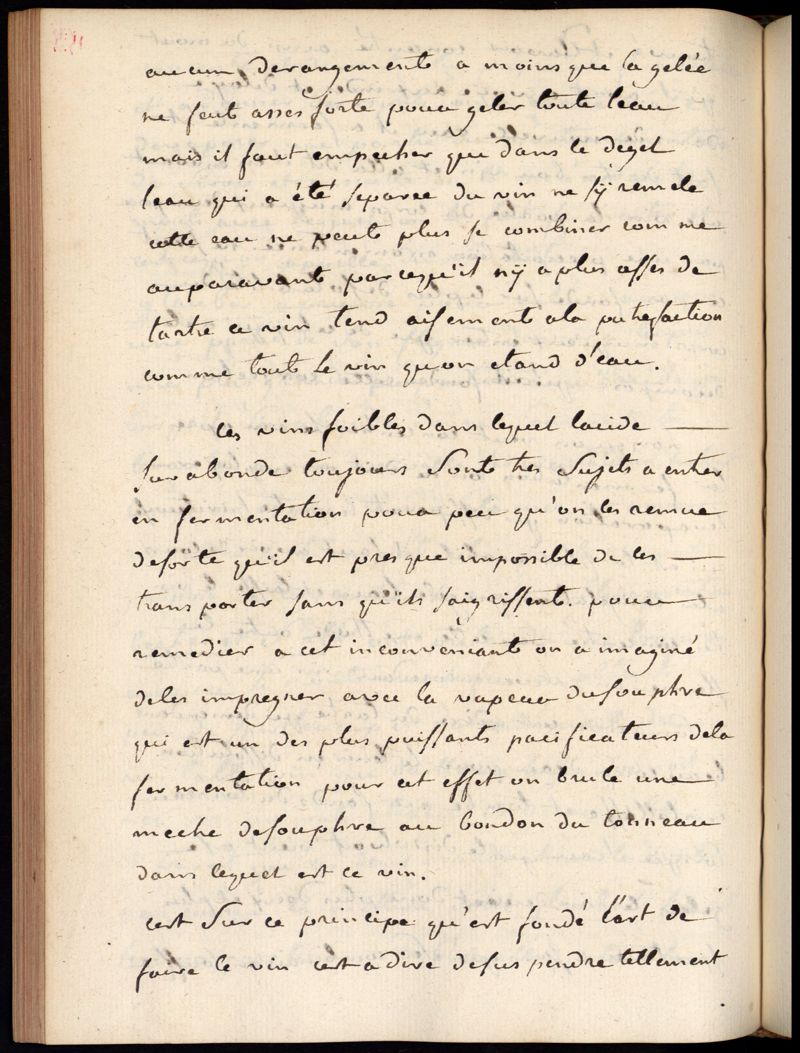 aucun derangement a moins que la gelée
ne feut asses forte pour geler toute leau
mais il faut empecher que dans le degel
leau qui a été separee du vin ne sÿ remele
cette eau ne peut plus se combiner comme
auparavant parcequ'il nÿ a plus asses de
tartre ce vin tend aisement ala putrefaction
comme tout le vin qu'on etand d'eau.
les vins foibles dans lequel lacide
surabonde toujours sont tres sujets a entrer
en fermentation pour peu qu'on les remue
desorte qu'il est presque impossible de les
transporter sans qu'ils saigrissent. pour
remedier a cet inconveniant on a imaginé
deles impregner avec la vapeur dusouphre
qui est un des plus puissants pacificateurs dela
fermentation pour cet effet on brule une
meche desouphre au bondon du tonneau
dans lequel est ce vin.
cest sur ce principe qu'est fondé l'art de
faire le vin cest a dire desuspendre tellement